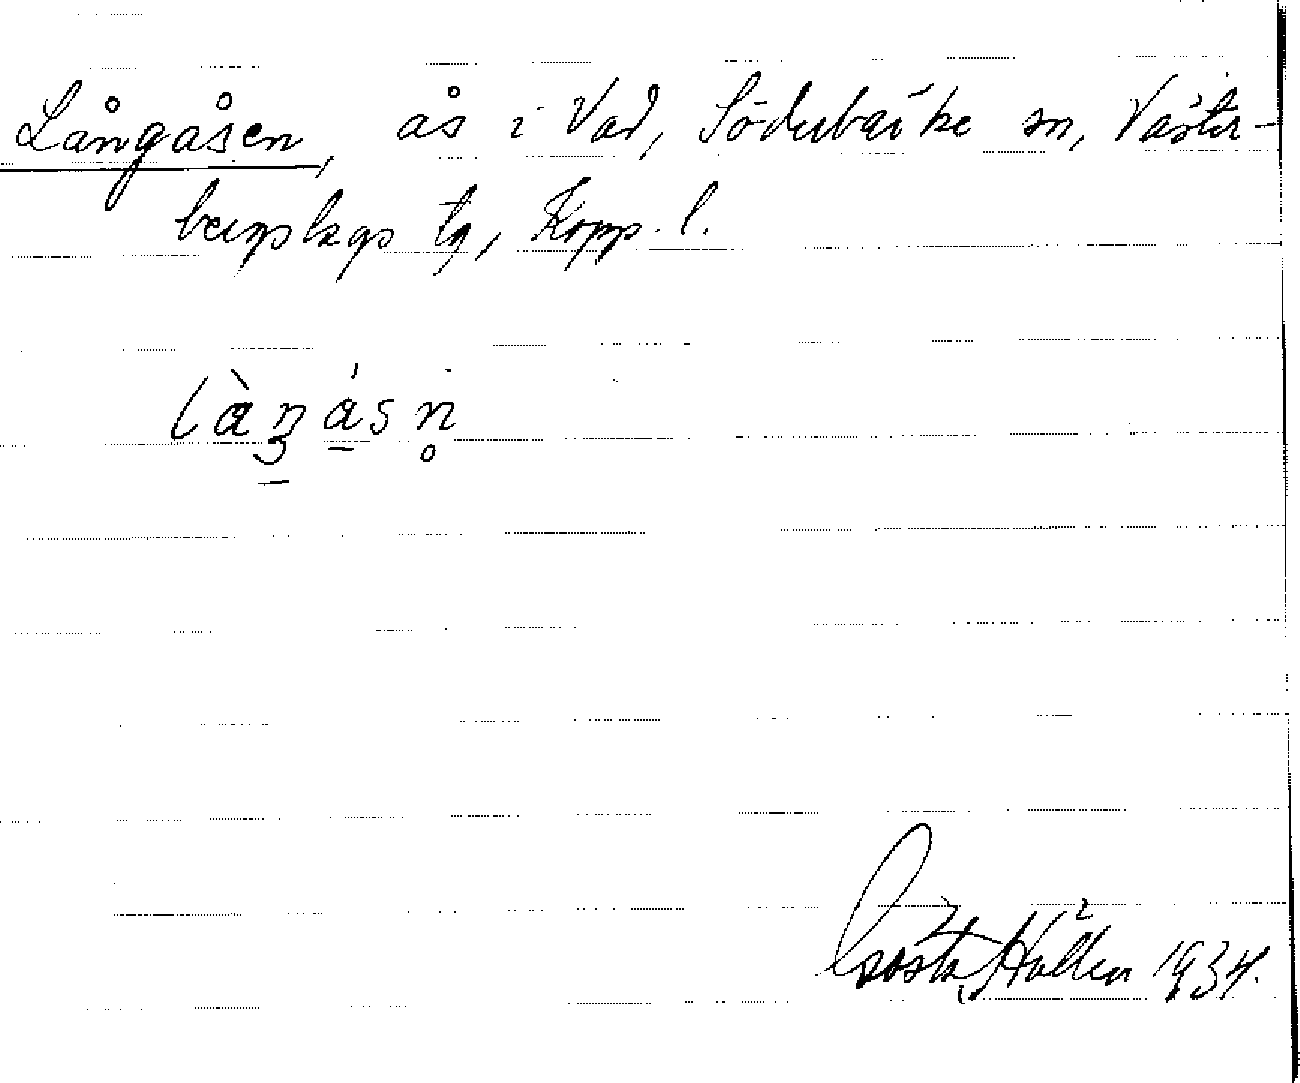 Långåsen, ås i Vad, Söderbärke sn, Väster-
bergslags tg, Kopp. l.
Gösta Hallen 1934.